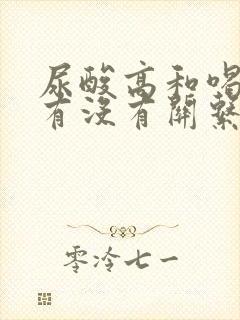 尿酸高和喝
有沒有關繫
零泠七一